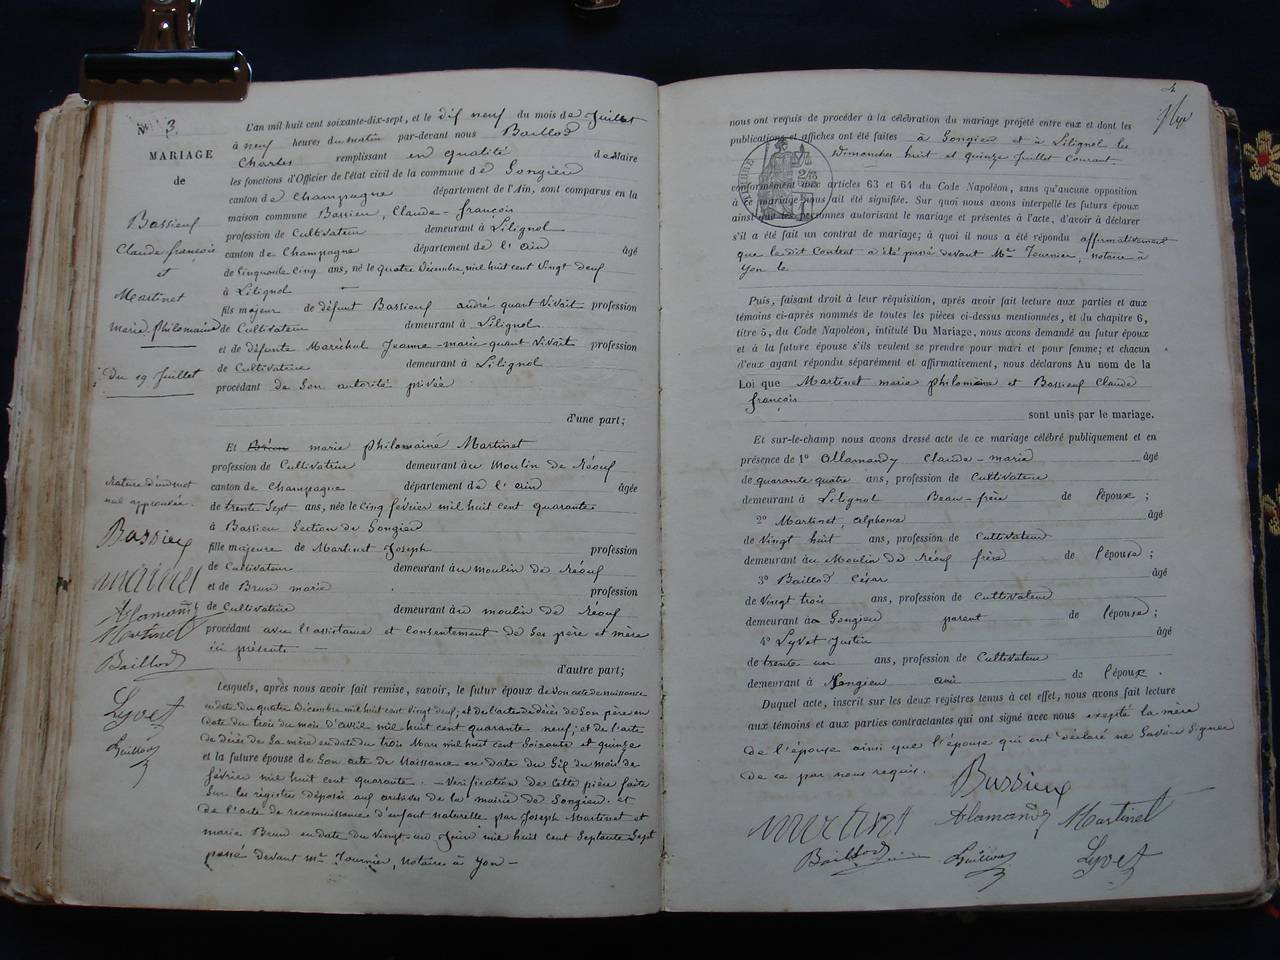 N° 3
MARIAGE
de
Bassieux
Claude françois
et
Martinet
marie philomaine
Du 19 Juillet
Rature d'un mot
nul approuvée.
Bassieux
martinet
Martinet
Baillod
Lyvet
L'an mil huit cent soixante-dix-sept, et le dix neuf du mois de Juillet
à neuf heures du matin par-devant nous Baillod
Charles remplissant en qualité de Maire
les fonctions d'Officier de l'état civil de la commune de Songieu
canton de Champagne département de l'Ain, sont comparus en la
maison commune Bassieu, Claude-françois
profession de Cultivateur demeurant à Lilignol
canton de Champagne département de l'ain âgé
de Cinquante Cinq ans, né le quatre Décembre, mil huit cent vingt deux
à Lilignol
fils majeur de défunt Bassieux andré quant Vivait profession
de Cultivateur demeurant à Lilignol
et de défunte Maréchal Jeanne-marie quant Vivait profession
de Cultivatrice demeurant à Lilignol
procédant de Son autorité privée
d'une part;
Et marie philomaine Martinet
profession de Cultivatrice demeurant au Moulin de Réoux
canton de Champagne département de l'ain âgée
de trente Sept ans, née le Cinq février mil huit cent quarante
à Bassieu Section de Songieu
fille majeure de Martinet Joseph profession
de Cultivateur demeurant au moulin de Réoux
et de Brun marie profession
de Cultivatrice demeurant au moulin de Réoux
procédant avec l'assistance et Consentement de Ses père et mère
ici présents
d'autre part;
Lesquels, après nous avoir fait remise, savoir, le futur époux de Son acte de naissance
en date du quatre Décembre mil huit cent vingt deux; et de l'acte de décès de Son père en
date du trois du mois d'avril mil huit cent quarante neuf; et de l'acte
de décès de Sa mère en date du trois Mars mil huit cent Soixante et quinze
et la future épouse de Son acte de Naissance en date du Six du mois de
février mil huit cent quarante. — Verification de Cette pièce faite
Sur les registres déposés aux archives de la mairie de Songieu. et
de l'acte de reconnaissance d'enfant naturelle par Joseph Martinet et
marie Brun en date du Vingt-un Juin mil huit cent Septante Sept
passé devant Me Tournier, Notaire à Yon —
nous ont requis de procéder à la célébration du mariage projeté entre eux et dont les
publications et affiches ont été faites à Songieu et à Lilignol les
Dimanches huit et quinze Juillet Courant
conformément aux articles 63 et 64 du Code Napoléon, sans qu'aucune opposition
à ce mariage nous ait été signifiée. Sur quoi nous avons interpellé les futurs époux
ainsi que les personnes autorisant le mariage et présentes à l'acte, d'avoir à déclarer
s'il a été fait un contrat de mariage; à quoi il nous a été répondu affirmativement
que le dit Contrat a été passé devant Me Tournier, notaire à
Yon le
Puis, faisant droit à leur réquisition, après avoir fait lecture aux parties et aux
témoins ci-après nommés de toutes les pièces ci-dessus mentionnées, et du chapitre 6,
titre 5, du Code Napoléon, intitulé Du Mariage, nous avons demandé au futur époux
et à la future épouse s'ils veulent se prendre pour mari et pour femme; et chacun
d'eux ayant répondu séparément et affirmativement, nous déclarons Au nom de la
Loi que Martinet marie philomène et Bassieux Claude
françois
sont unis par le mariage.
Et sur-le-champ nous avons dressé acte de ce mariage célébré publiquement et en
présence de 1° Allamandy Claude-marie âgé
de quarante quatre ans, profession de Cultivateur
demeurant à Lilignol Beau-frère de l'époux;
2° Martinet, alphonse âgé
de Vingt huit ans, profession de Cultivateur
demeurant au Moulin de Réoux frère de l'épouse;
3° Baillod César âgé
de Vingt trois ans, profession de Cultivateur
demeurant à Songieu parent de l'épouse;
4° Lyvet Justin âgé
de trente un ans, profession de Cultivateur
demeurant à Songieu ami de l'époux.
Duquel acte, inscrit sur les deux registres tenus à cet effet, nous avons fait lecture
aux témoins et aux parties contractantes qui ont signé avec nous excepté la mère
de l'épouse ainsi que l'épouse qui ont déclaré ne Savoir Signer
de ce par nous requis.
Bassieux
martinet Alamandy Martinet
Baillod Lyvet